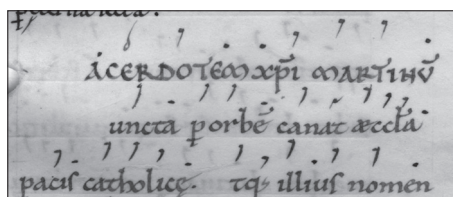 ACERDOTEM XP̄I MARTINŪ
uncta ꝑ orbē canat æccl̄a
pacis catholicę. Atq; illius nomen